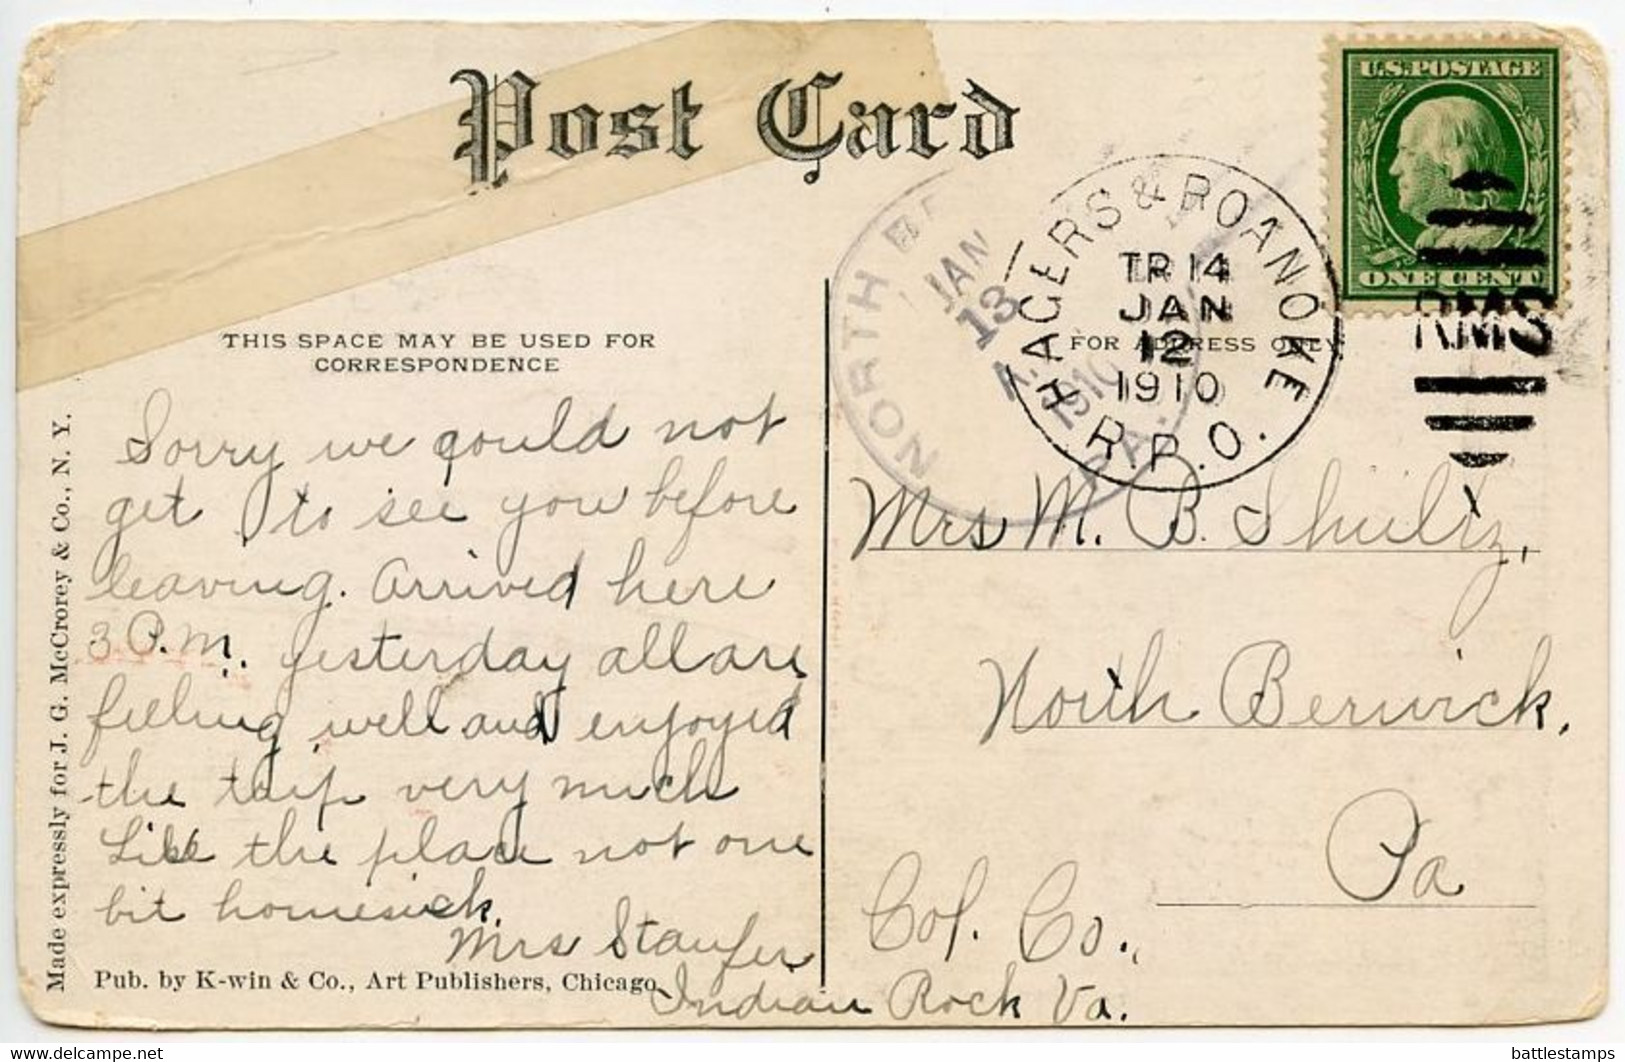 Post Card
U.S. POSTAGE
ONE CENT
HAGERS & ROANOKE
TR 14
JAN
12
1910
R.P.O.
RMS
NORTH BE
JAN
13
A.
1910
PA.
THIS SPACE MAY BE USED FOR
CORRESPONDENCE
FOR ADDRESS ONLY
Sorry we could not
get to see you before
leaving. Arrived here
3 P.M. yesterday all are
feeling well and enjoyed
the trip very much
Like the place not one
bit homesick.
Mrs Staufer
Indian Rock Va.
Mrs M. B. Shultz,
North Berwick,
Pa
Col. Co.,
Made expressly for J. G. McCrorey & Co., N. Y.
Pub. by K-win & Co., Art Publishers, Chicago
www.delcampe.net
battlestamps